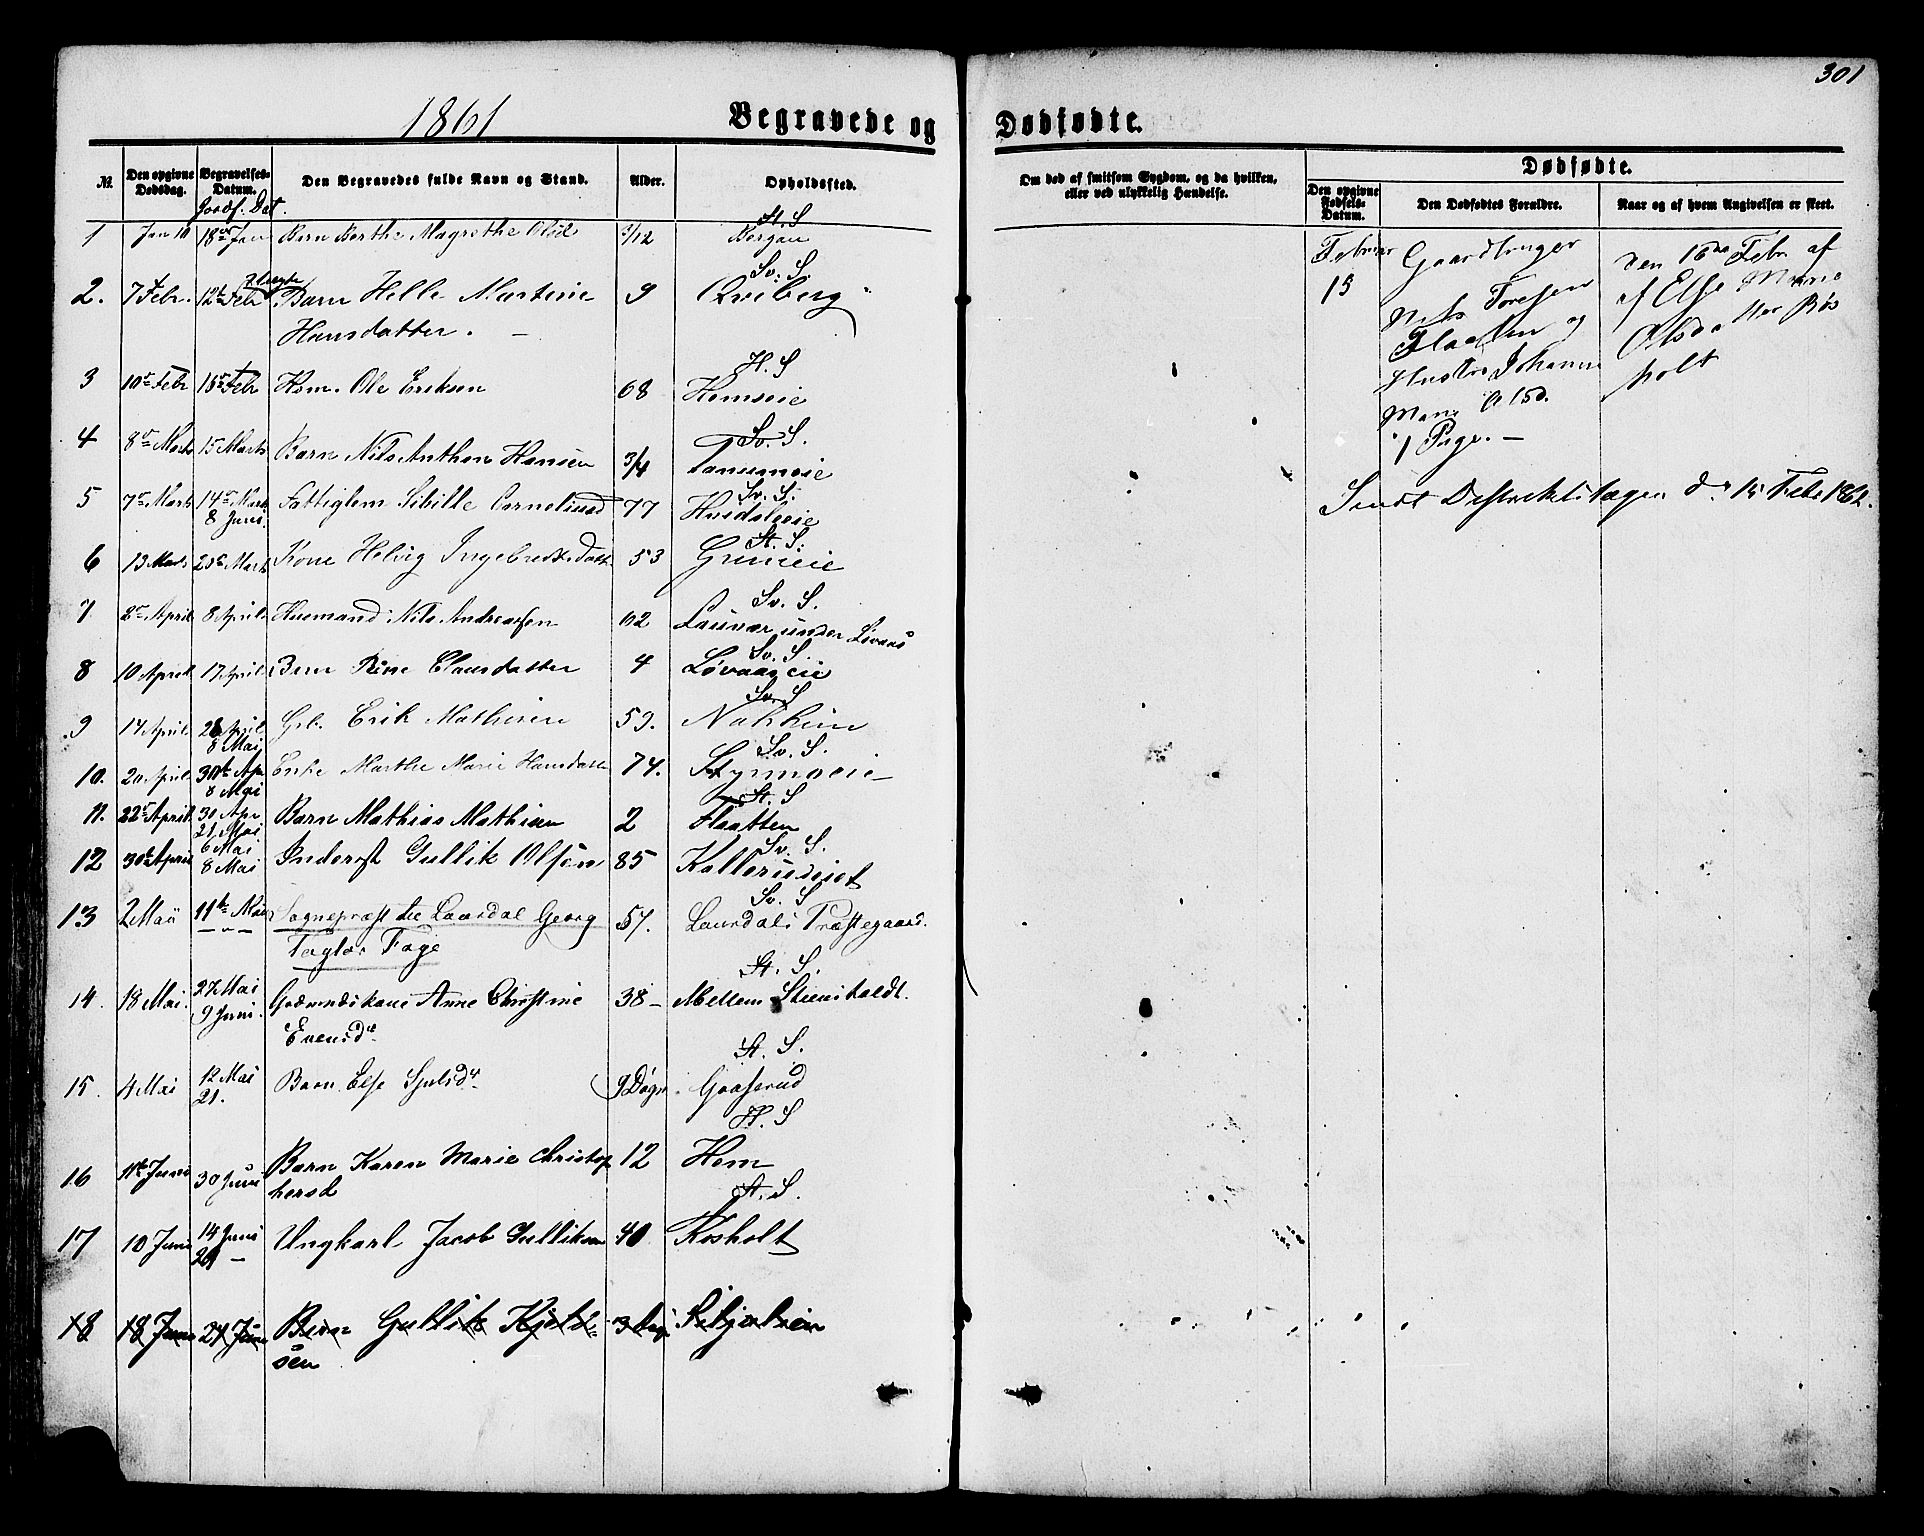 301
1861 Begravede og Dødfødte.
No. Den opgivne Dødsdag. Begravelses-Datum. Den Begravedes fulde Navn og Stand. Alder. Opholdssted.
Jordf. Dat.
Om død af smitsom Sygdom, og da hvilken, eller ved ulykkelig Hændelse.
Dødfødte.
Den opgivne Fødsels-Datum. Den Dødfødtes Forældre. Naar og af hvem Angivelsen er skeet.
St. S
1 Jan 10 18 Jan Barn Berthe Magrethe Olsd 3/12 Bergan
Sv. S.
2. 7 Febr. 12t Febr Barn Helle Martine 9 Qviberg
Hansdatter. —
H. S
3 10 Febr 15 Febr Kom. Ole Eriksen 68 Hemseie
Sv. S.
4 8 Marts 15 Marts Barn Nils Anthon Hansen 3/4 Tanumeie
Sv. S.
5 7 Marts 14 Marts Fattiglem Sibille Corneliusd 77 Hvidsteeie
8 Juni.
St. S.
6 13 Marts 20 Marts Kone Helvig Ingebretsdatt 53 Gruneie
Sv. S.
7. 2 April 8 April Husmand Nils Andreassen 62 Laurvær under Løvaas
Sv. S
8 10 April 17 April Barn Rine Clausdatter 4 Løvaaseie
Sv. S
9 14 April 28 April Grb. Erik Mathisen 59. Nakkim
8 Mai
Sv. S.
10. 20 April 30t Ap Enke Marthe Marie Hansdatt 74. Styrmoeie
8 Mai
St. S
11. 22 April 30 Apr Barn Mathias Mathisen 2 Flaatten
21 Mai
Sv. S.
12 30t April 6 Mai Inderst Gullik Olsen 85 Kallerudeiet
8 Mai
Sv. S
13 2 Mai 11te Mai Sognepræst til Laurdal Georg 57. Laurdals Præstegaard.
Taylor Fage
St. S.
14. 18 Mai. 27 Mai Gdmandskone Anne Christine 38 — Mellem Steensholdt.
9 Juni. Evensdr
St. S.
15. 4 Mai 12 Mai Barn Else Sjulsdr 9 Døgn Gaaserud
21.
H. S
16 11t Juni 30 Juni Barn Karen Marie Christop 12 Hem
hersd
St. S.
17 10 Juni 14 Juni Ungkarl Jacob Gulliksen 40 Kosholt
21 —
18 18 Juni 24 Juni Barn Gullik Kjeld- 3 Døgn
sen
Februar
15
Gaardbruger
Nils Toresen
Flaaten og
Hustru Johanne
Marie Olsd.
1 Pige. —
den 16de Febr. af
af Else Marie
Olsdatter Røs
holt
Sendt Districtslægen d. 15 Febr 1862.